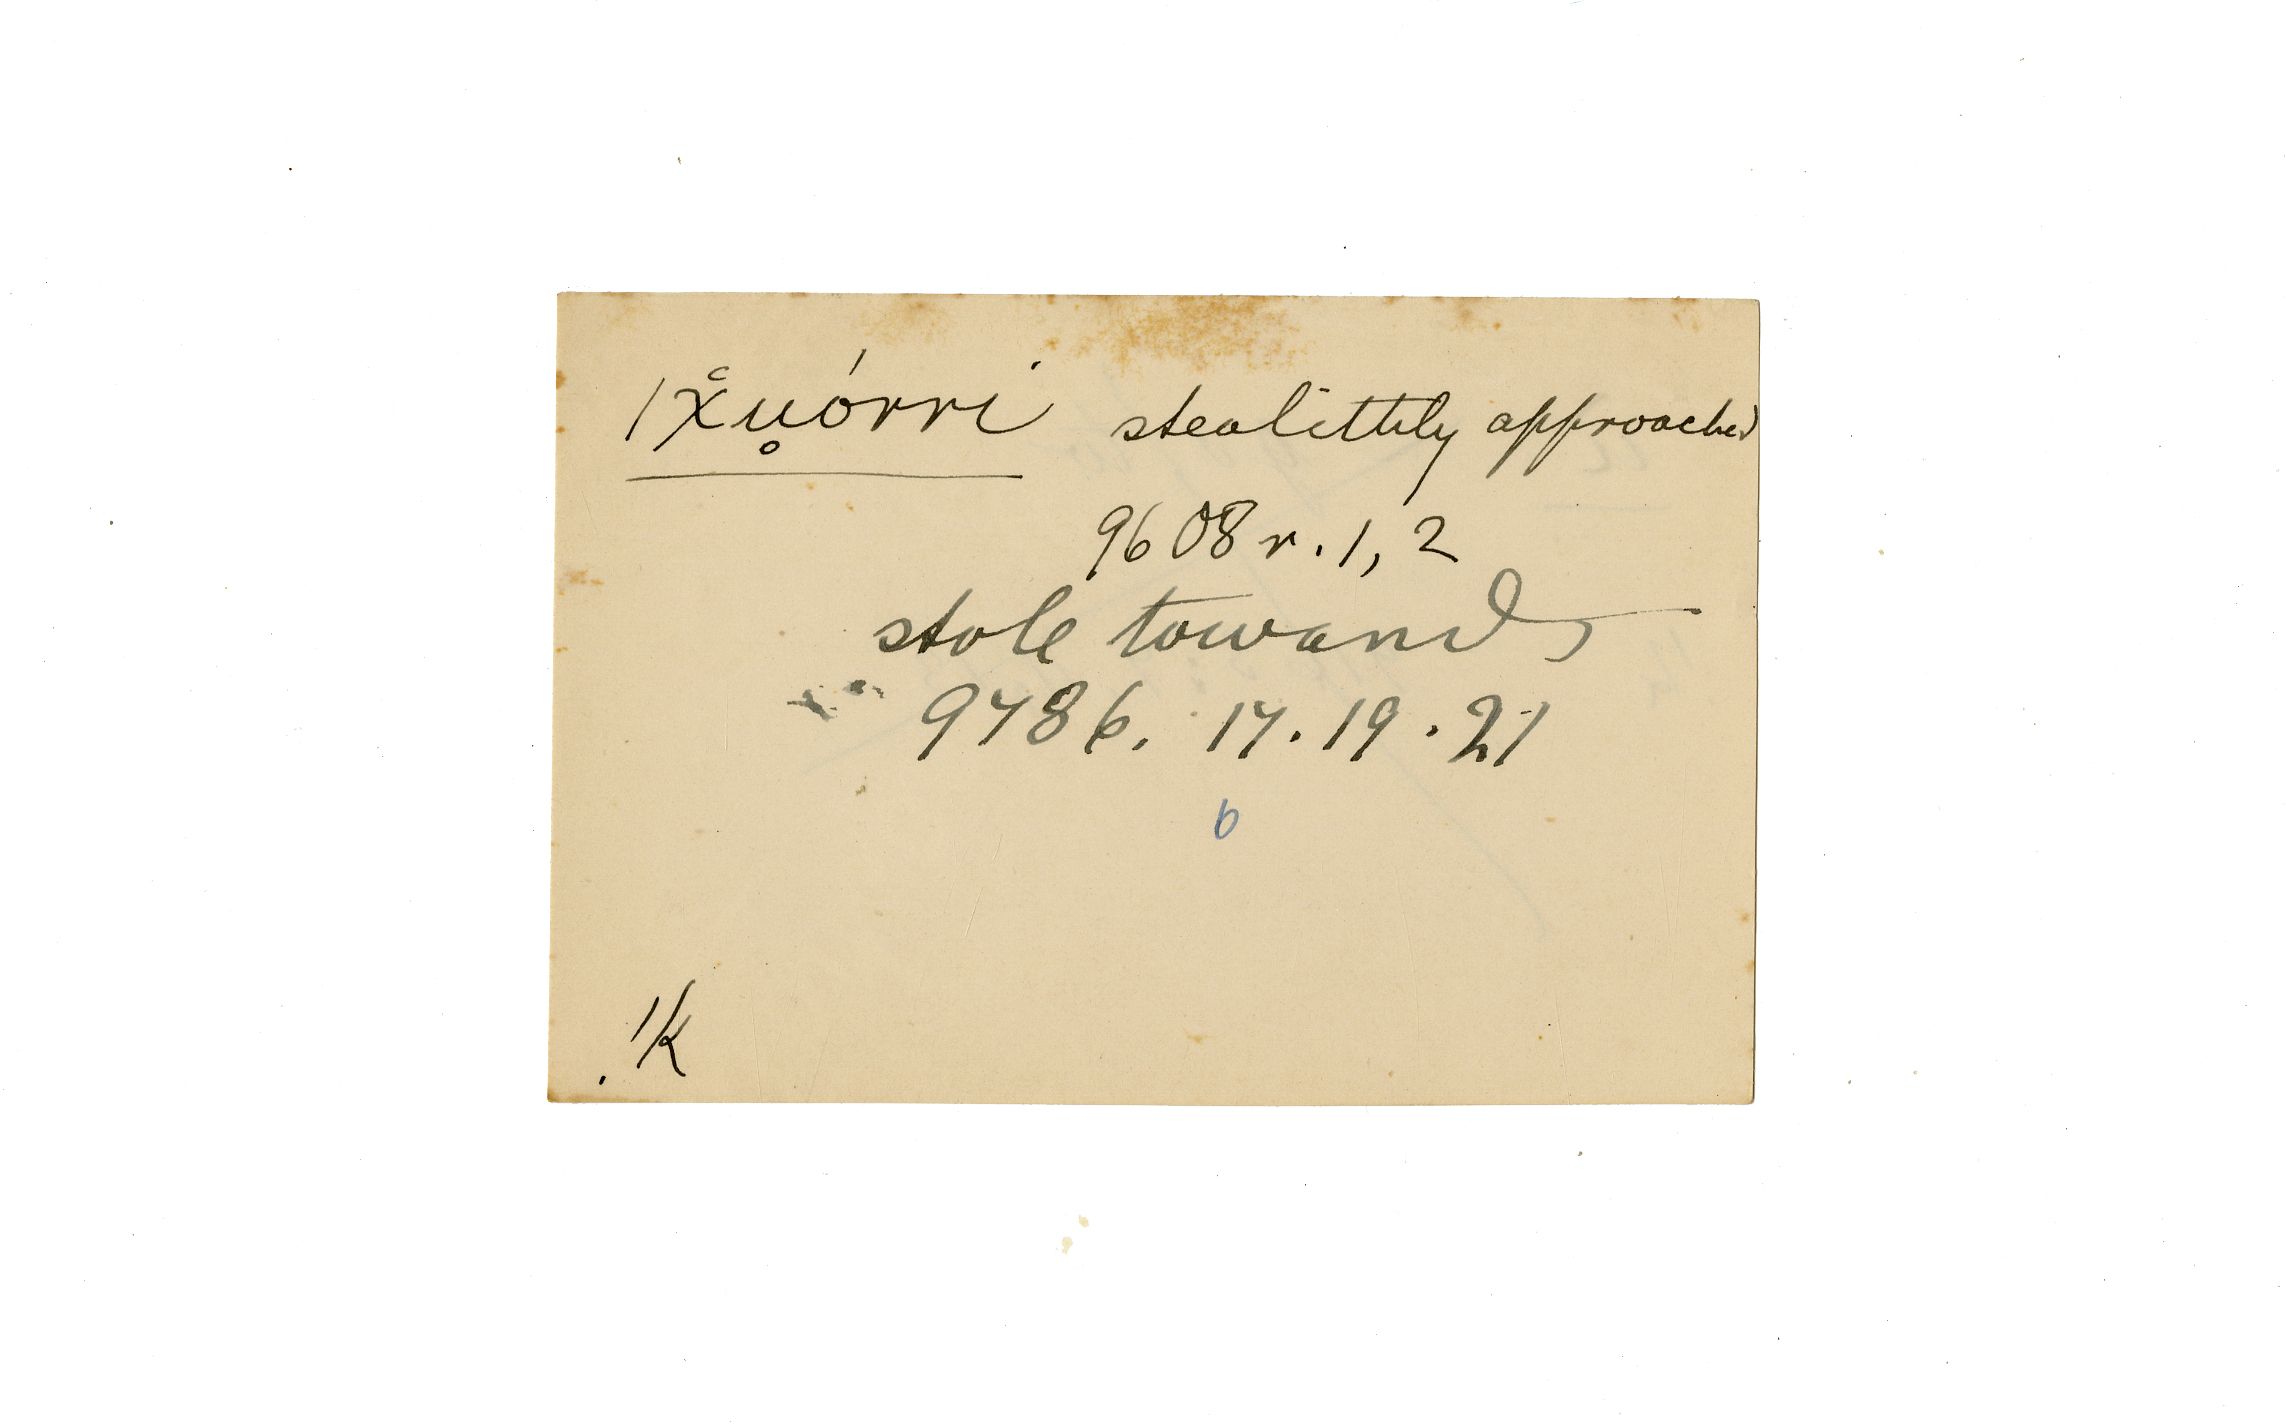 /χ̆u̥órri stealittily approached
9608 r. 1, 2
stole towards
9786. 17. 19. 21
6
!k